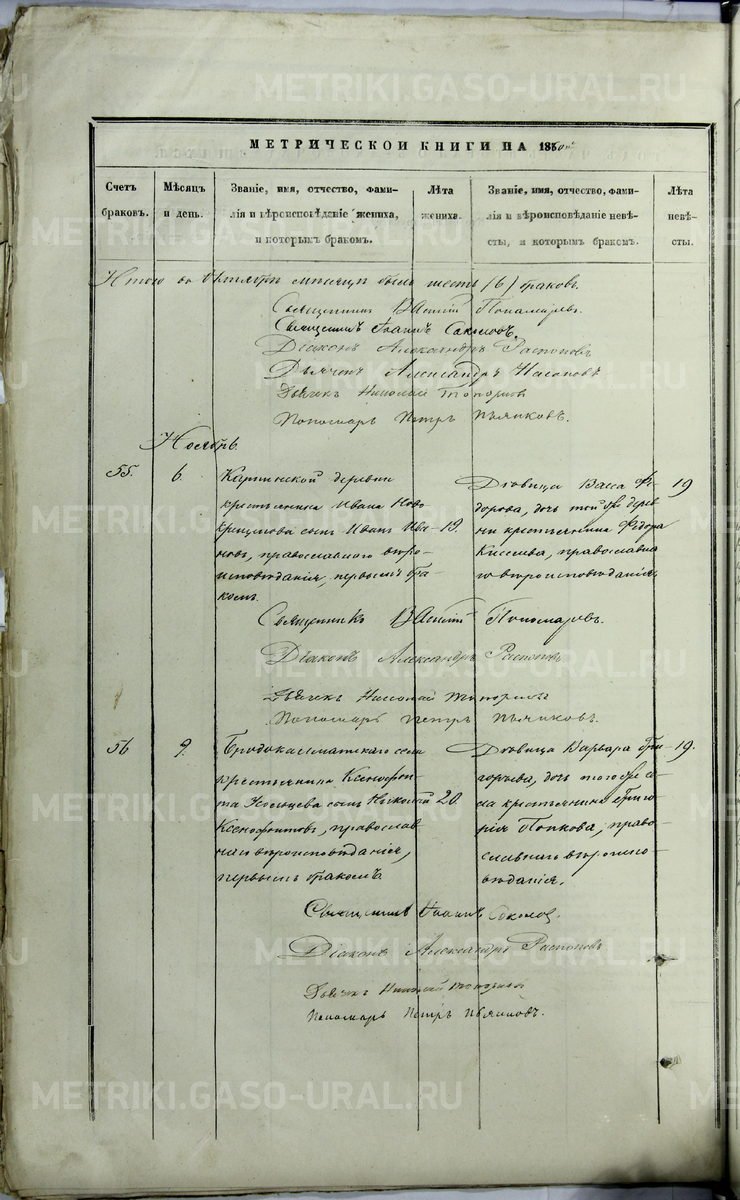 МЕТРИЧЕСКОЙ КНИГИ НА 1860й
Счетъ браковъ.
Мѣсяцъ и день.
Званіе, имя, отчество, фами-
лія и вѣроисповѣданіе жениха,
и которымъ бракомъ.
Лѣта жениха.
Званіе, имя, отчество, фами-
лія и вѣроисповѣданіе невѣ-
сты, и которымъ бракомъ.
Лѣта невѣ-
сты.
Итого въ Октябрѣ мѣсяцѣ было шесть (6) браковъ.
Священникъ Василій Пономаревъ.
Священникъ Іоаннъ Соколовъ.
Діаконъ Александръ Распоповъ
Дьячекъ Александръ
Дьячекъ Николай Топорковъ
Пономарь Петръ Пьянковъ.
Ноябрь.
55.
6.
деревни
крестьянина Ивана Ново-
сынъ Иванъ Ива-
новъ, православнаго вѣро-
исповѣданія, первымъ бра-
комъ.
19.
Дѣвица Васса Ѳе-
дорова, дочь той же дерев-
ни крестьянина Ѳедора
Киселева, православна-
го вѣроисповѣданія,
19
Священникъ Василій Пономаревъ.
Діаконъ Александръ Распоповъ
Дьячекъ Николай
Пономарь Петръ Пьянковъ.
56
9.
Бродокалматскаго села
крестьянина Ксенофон-
та сынъ Николай
Ксенофонтовъ, православ-
наго вѣроисповѣданія,
первымъ бракомъ
20.
Дѣвица Варвара Гри-
горьева, дочь того же се-
ла крестьянина Григо-
рія Попкова, право-
славнаго вѣроиспо-
вѣданія.
19.
Священникъ Іоаннъ Соколовъ.
Діаконъ Александръ Распоповъ
Дьячекъ Николай
Пономарь Петръ Пьянковъ.
METRIKI.GASO-URAL.RU